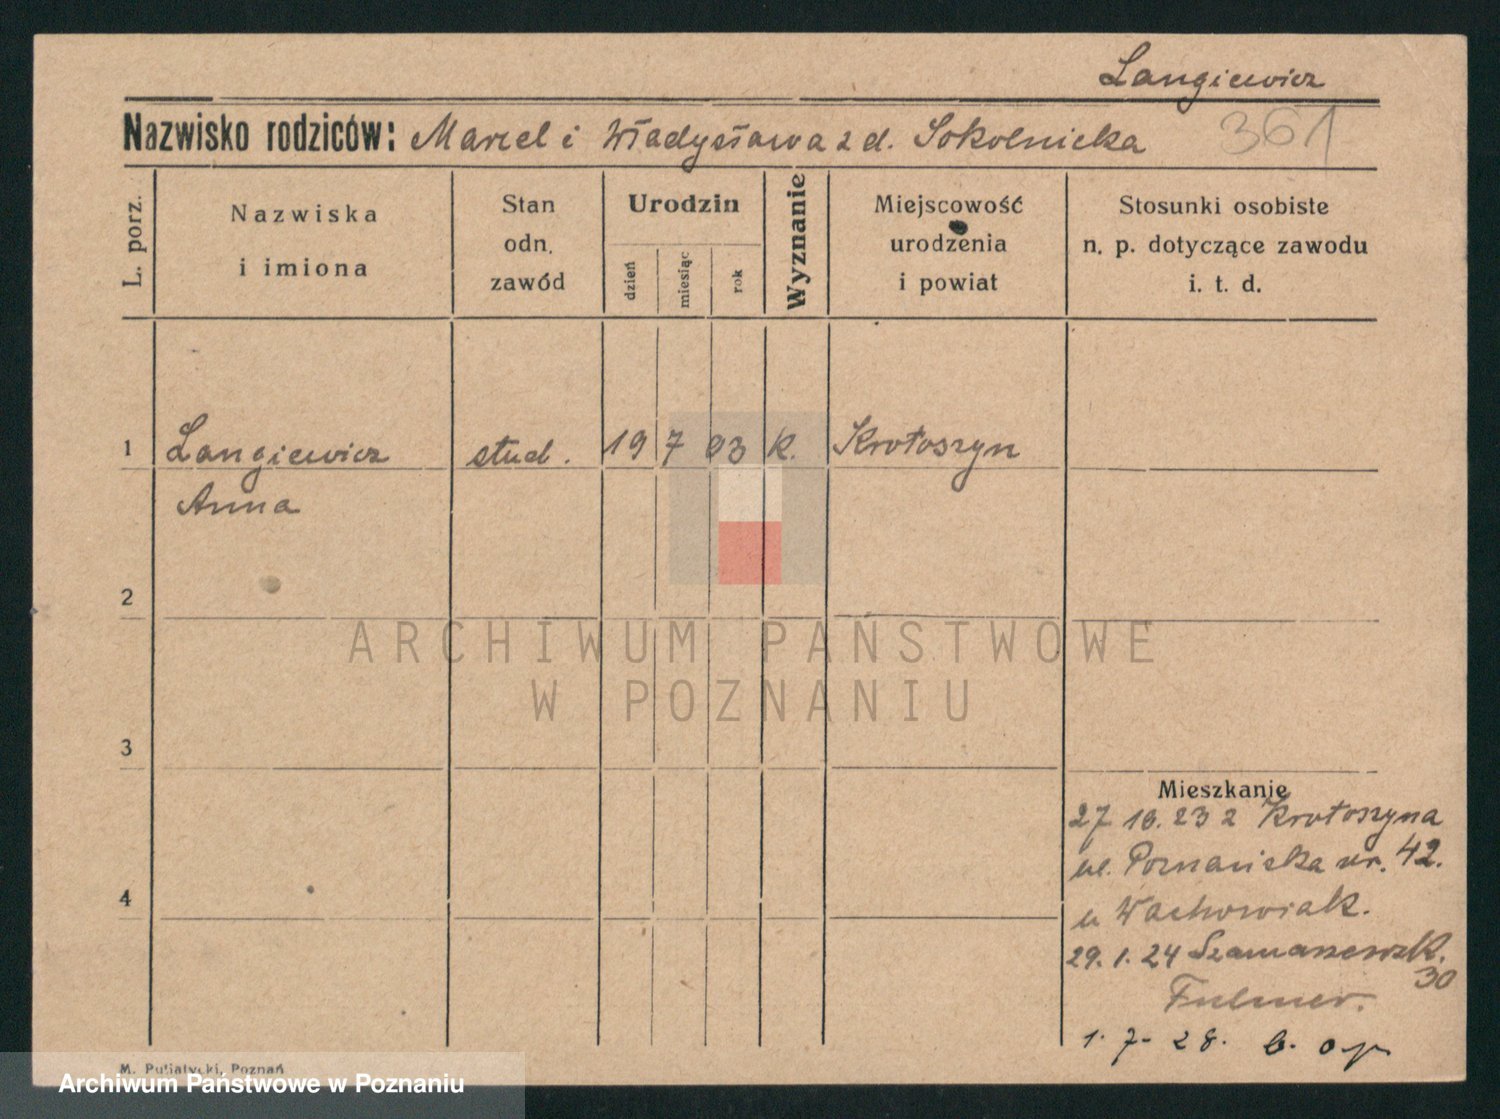 Langiewicz
Nazwisko rodziców: Marcel i Władysława z d. Sokolnicka 361
L. porz.
Nazwiska
i imiona
Stan
odn.
zawód
Urodzin
dzień
miesiąc
rok
Wyznanie
Miejscowość
urodzenia
i powiat
Stosunki osobiste
n. p. dotyczące zawodu
i. t. d.
1 Langiewicz stud. 19 7 03 k. Krotoszyn
Anna
2
3
4
Mieszkanie
27 10. 23 z Krotoszyna
ul. Poznańska nr. 42.
u Wachowiak.
29. 1. 24 Szamarzewsk. 30
1. 7- 28. b.
M. Putiatycki, Poznań
ARCHIWUM PAŃSTWOWE
W POZNANIU
Archiwum Państwowe w Poznaniu